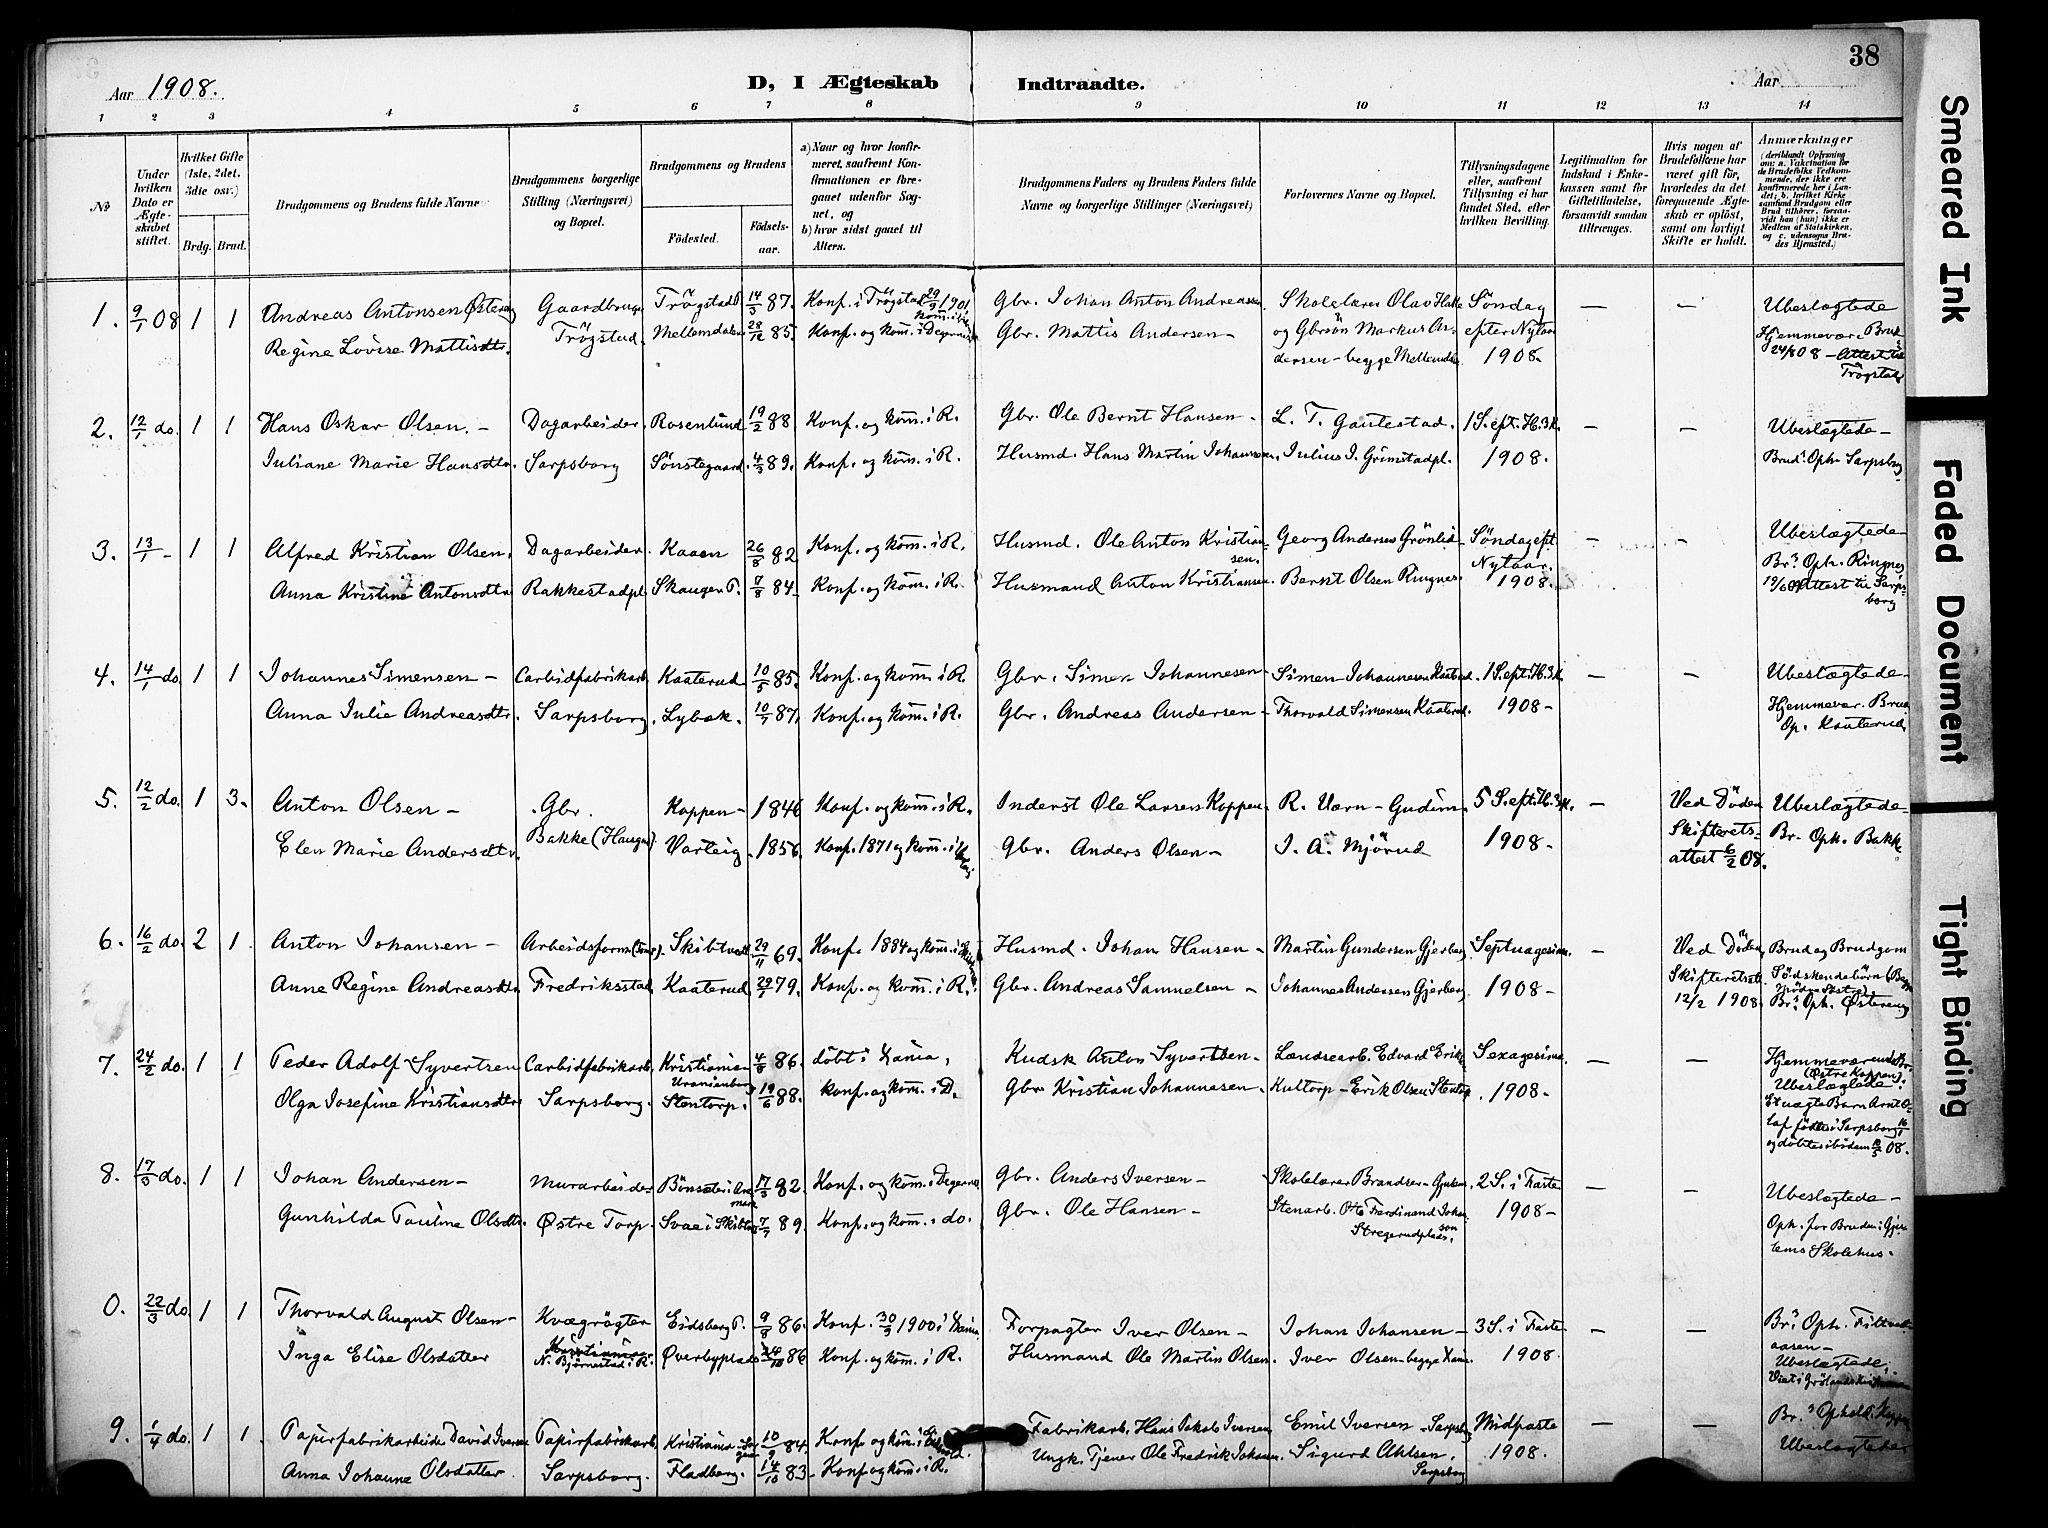 38
Aar 1908.
D, I Ægteskab Indtraadte.
Aar
1 2 3 4 5 6 7 8 9 10 11 12 13 14
№
Under hvilken Dato er Ægteskabet stiftet.
Hvilket Gifte (1ste, 2det, 3die osv.)
Brdg. Brud.
Brudgommens og Brudens fulde Navne
Brudgommens borgerlige Stilling (Næringsvei) og Bopæl.
Brudgommens og Brudens
Födested. Födselsaar.
a) Naar og hvor konfirmeret, saafremt Konfirmationen er foregaaet udenfor Sognet, og
b) hvor sidst gaaet til Alters.
Brudgommens Faders og Brudens Faders fulde Navne og borgerlige Stillinger (Næringsvei)
Forlovernes Navne og Bopæl.
Tillysningsdagene eller, saafremt Tillysning ei har fundet Sted, efter hvilken Bevilling.
Legitimation for Indskud i Enkekassen samt for Giftetilladelse, forsaavidt saadan tiltrænges.
Hvis nogen af Brudefolkene har været gift för, hvorledes da det foregaaende Ægteskab er oplöst, samt om lovligt Skifte er holdt.
Anmærkninger (deriblandt Oplysning om: a. Vakcination for de Brudefolks Vedkommende, der ikke ere konfirmerede her i Landet; b. hvilket Kirkesamfund Brudgom eller Brud tilhörer, forsaavidt han (hun) ikke er Medlem af Statskirken, og c. udensogns Brudes Hjemsted.)
1. 9/1 08 1 1 Andreas Antonsen Gaardbruger Trögstad 14/3 87. Konf. i Trögstad 29/9 1901 Gbr. Johan Anton Andreasen Skolelærer Olav Söndag — — Ubeslægtede
Regine Lovise Mattisdtr. Trögstad. Mellemdalen 28/12 85. Konf. og kom. i Degernes Gbr. Mattis Andersen – og Gbrsön Markus Andersen – begge efter Nytaar 1908 – Hjemmevær. Brud
Attest til Trögstad
2. 12/1 do. 1 1 Hans Oskar Olsen. – Dagarbeider. Rosenlund 19/2 88 Konf. og kom. i R. Gbr. Ole Bernt Hansen – L. T. Gautestad. 1 S. eft. H.3k. – – Ubeslægtede –
Juliane Marie Hansdtr. Sarpsborg Sönstegaard. 4/3 89. Konf. og kom. i R. Husmd. Hans Martin Johannesen. Julius J. Grimstadpl. 1908. Brud. Oph. Sarpsborg
3. 13/1 – 1 1 Alfred Kristian Olsen. Dagarbeider. Kaaen 26/8 82 Konf. og kom. i R. Husmd. Ole Anton Kristiansen. Georg Andersen Grönlid Söndag eft. – – Ubeslægtede
Anna Kristine Antonsdtr. Rakkestadpl. Skaugen P. 7/8 84 – Konf. og kom. i R. Husmand Anton Kristiansen. Bernt Olsen Ringnes. Nytaar. 1908. Br. Oph. Ringnes
Attest til Sarpsborg
4. 14/1 do 1 1 Johannes Simensen – Carbidfabrikarb. Kaaterud 10/5 85. Konf. og kom. i R. Gbr. Simen Johannesen – Simen Johannesen Kaaterud. 1 S. eft. H.3k. – – Ubeslægtede –
Anna Julie Andreasdtr. Sarpsborg. Lybæk. 10/1 87. Konf. og kom. i R. Gbr. Andreas Andersen – Thorvald Simensen Kaaterud. 1908 – Hjemmevær. Brud
Op. Kaaterud
5. 12/2 do. 1 3. Anton Olsen – Gbr. Koppen – 1846 Konf. og kom. i R. Inderst Ole Larsen Koppen. R. Værn – Gudim. 5 S. eft. H.3k. – Ved Döden Ubeslægtede –
Elen Marie Andersdtr. Bakke (Haugen). Varteig. 1856. Konf. 1871 og kom. i Gbr. Anders Olsen – J. A. Mjörud 1908 – Skifteretsattest 6/2 08. Br. Oph. Bakke
6. 16/2 do. 2 1. Anton Johansen – Arbeidsform. Skibtvedt 29/11 69. Konf. 1884 og kom. i Husmd. Johan Hansen – Martin Gundersen Gjerberg. Septuagesima. – Ved Döden Brud og Brudgom
Anne Regine Andreasdtr. Fredriksstad Kaaterud. 29/1 79. Konf. og kom. i R. Gbr. Andreas Samuelsen – Johannes Andersen Gjerberg 1908 – Skifteretsatt. 12/2 1908. Södskendebörn
Br. Oph. Östereng
7. 24/2 do. 1 1 Peder Adolf Syvertsen Carbidfabrikarb. Kristiania Uranienborg 4/8 86. döbt i Xania, Kudsk Anton Syvertsen – Landsearb. Edvard Sexagesima. – – Hjemmeværende
Olga Josefine Kristiansdtr. Sarpsborg. Stentorp. 19/6 88. konf. og kom. i D. Gbr Kristian Johannesen – Kultorp – Erik Olsen Stentorp 1908 – (Östre Koppen)
Ubeslægtede.
Et uægte Barn Arnt Olaf födt i Sarpsborg
og döbt 08.
8. 17/3 do. 1 1 Johan Andersen – Murarbeider 17/3 82. Konf. og kom. i Degernes Gbr. Anders Iversen – Skolelærer 2 S. i Faste – – Ubeslægtede –
Gunhilda Pauline Olsdtr. Østre Torp. Svae i Skibtvedt 7/7 89. Konf. og kom. i do. Gbr. Ole Hansen – Stenarb. Otto Ferdinand Johansen 1908 – Oph. for Bruden i
Skolehus.
0. 22/3 do. 1 1 Thorvald August Olsen – Kvægrögter Eidsberg P. 9/8 86. Konf. 30/9 1900 i Xania. Forpagter Iver Olsen – Johan Johansen – 3 S. i Faste – – Br. Oph.
Inga Elise Olsdatter Kristiania N. Bjørnestad i R. Øverbyplads 24/10 86 Konf. og kom. i R. Husmand Ole Martin Olsen. Iver Olsen – begge Xania. 1908. aasen –
Ubeslægtede.
9. 1/4 do. 1 1. Papirfabrikarbeider David Iversen Papirfabrikarb. Kristiania 10/9 84. Konf. og kom. i Fabrikarb. Hans Jakob Iversen Emil Iversen – Sarpsbg Midfaste – – Br. Ophold.
Anna Johanne Olsdatter. Sarpsborg. Fladberg. 14/10 83 – Konf og kom. i R. Ungk. Tjener Ole Fredrik Johansen. Sigurd Ohlsen. Sarpsborg 1908. Ubeslægtede
Smeared Ink
Faded Document
Tight Binding